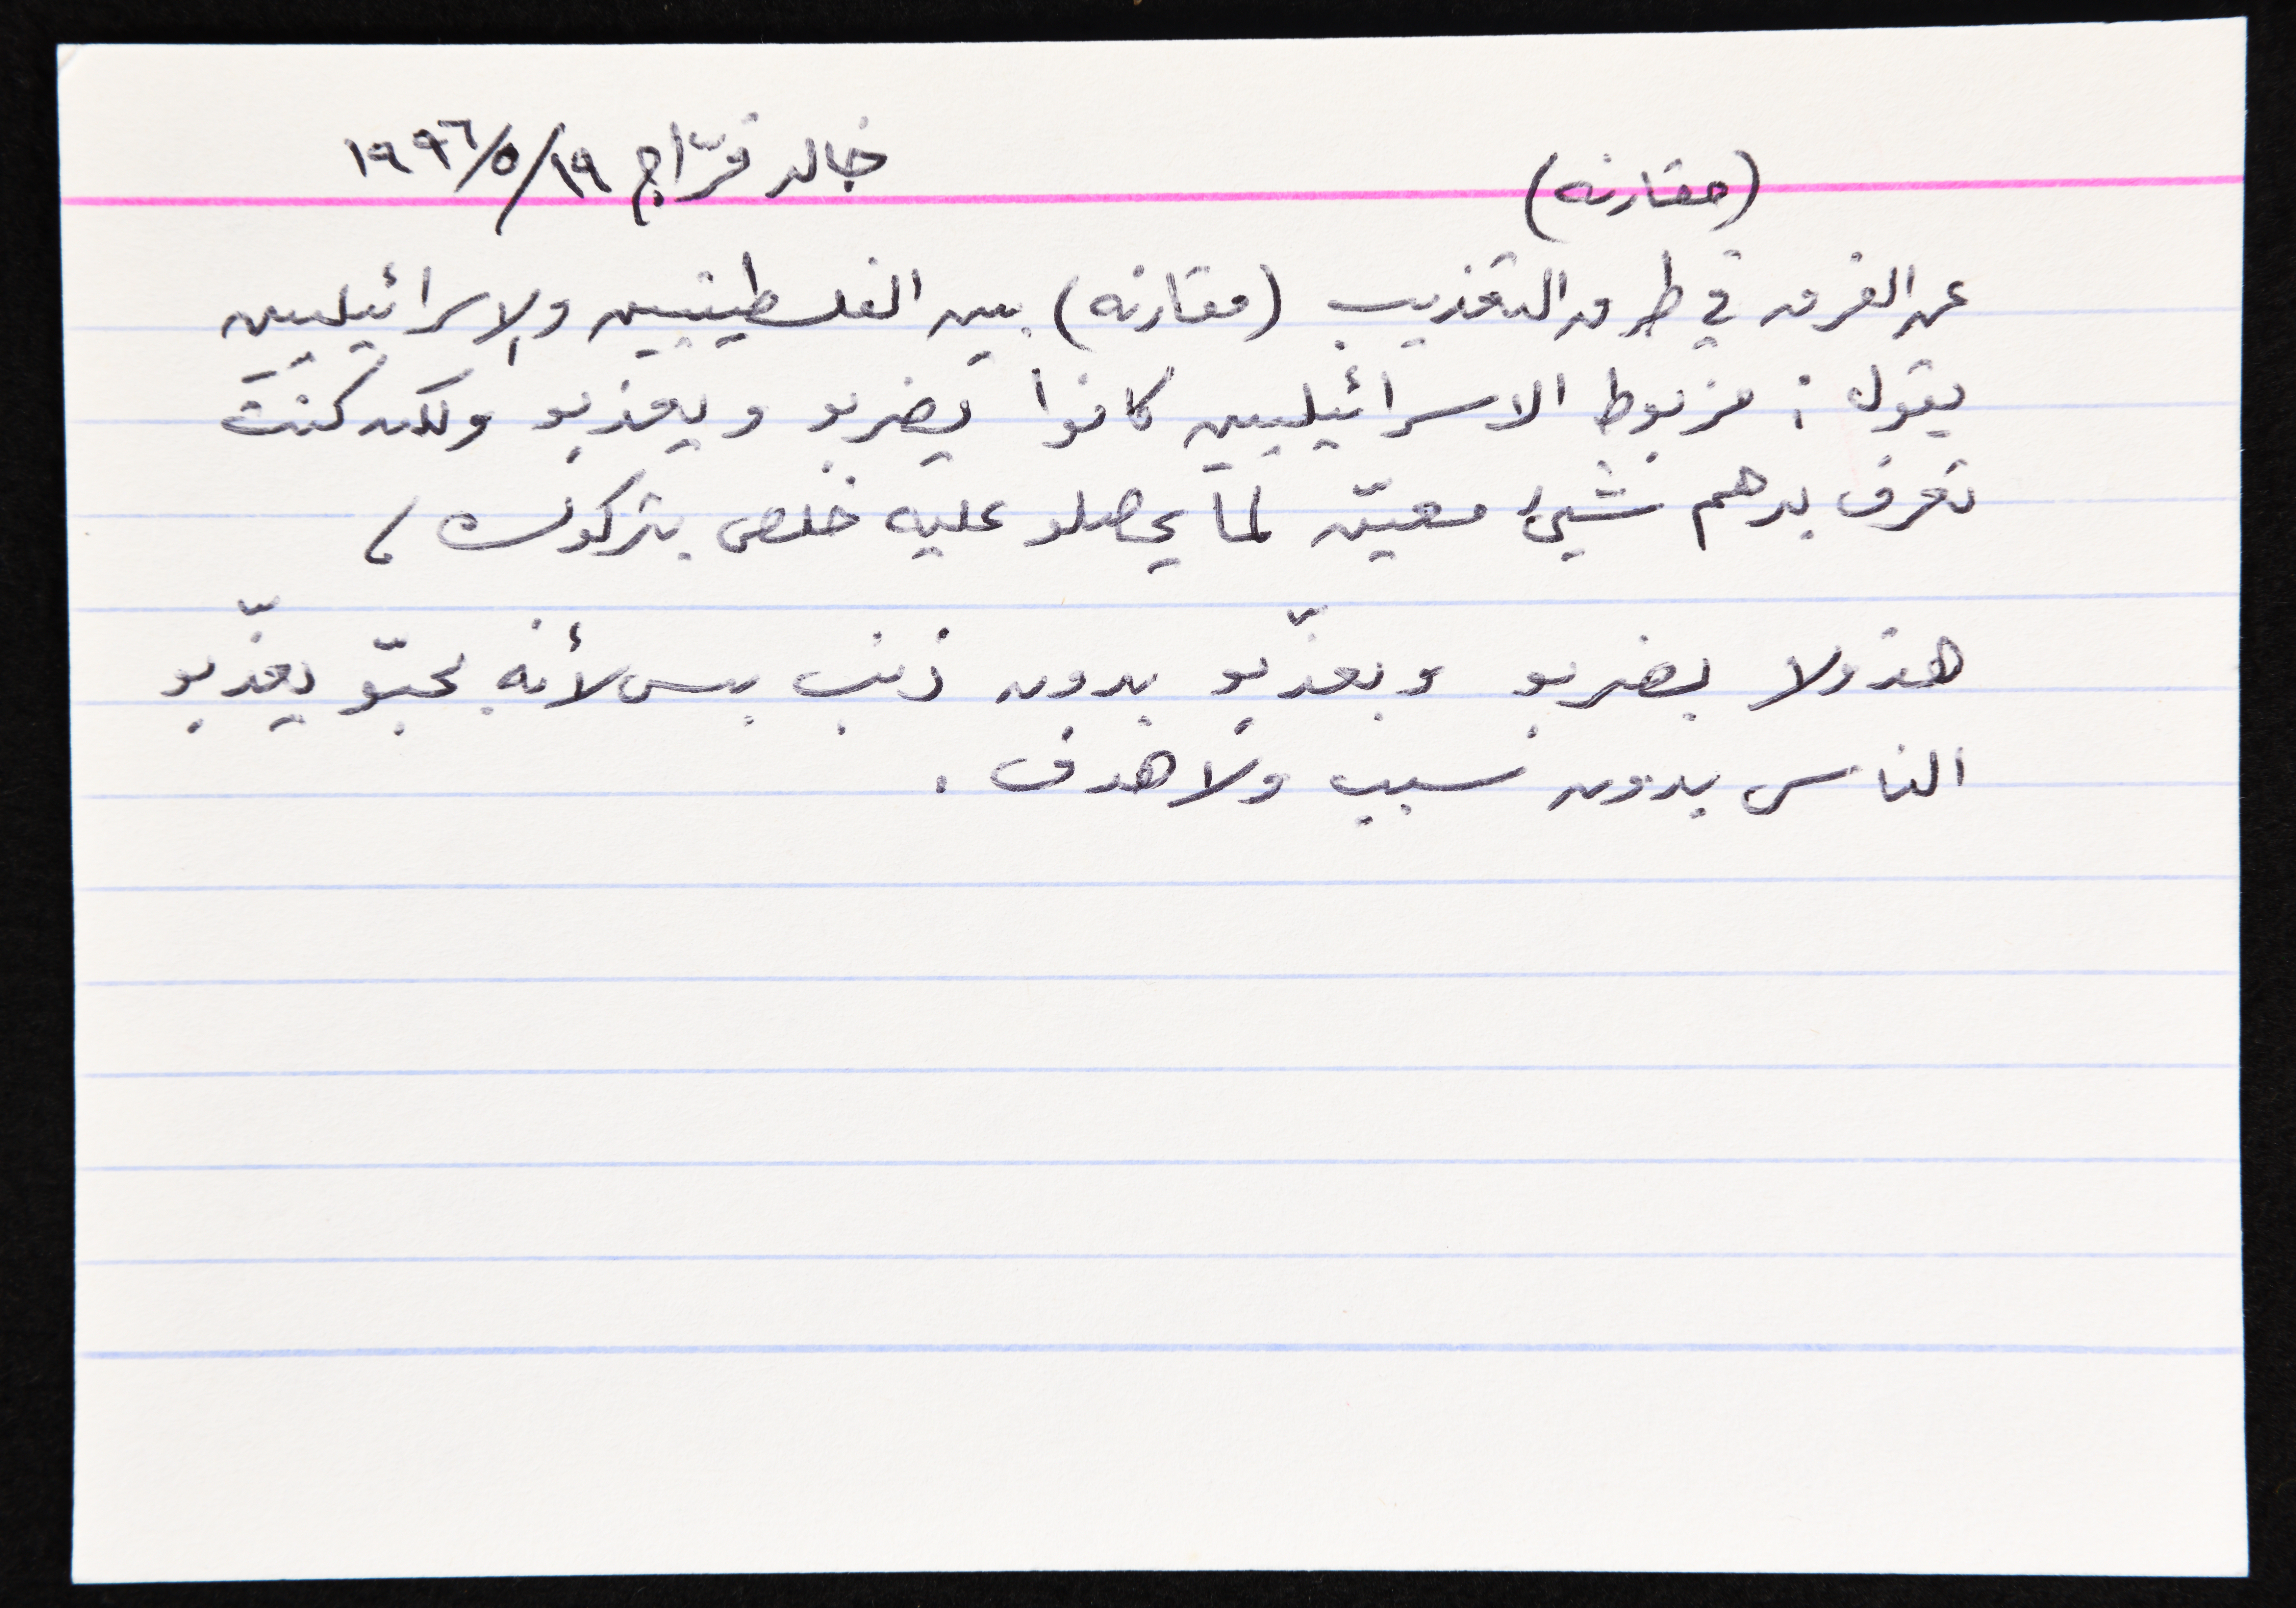 (مقارنه) خالد فرّاج ١٩/٥/١٩٩٦
عن الفرق في طرق التعذيب (مقارنه) بين الفلسطينيين والإسرائيليين
يقول : مزبوط الاسرائيليين كانوا يضربو ويعذبو ولكن كنت
تعرف بدهم شيئ معيّن لما يحصلو عليه خلص بتركوك ،
هذولا بضربو وبعذّبو بدون ذنب بس لأنه بحبّو يعذّبو
الناس بدون سبب ولا هدف .